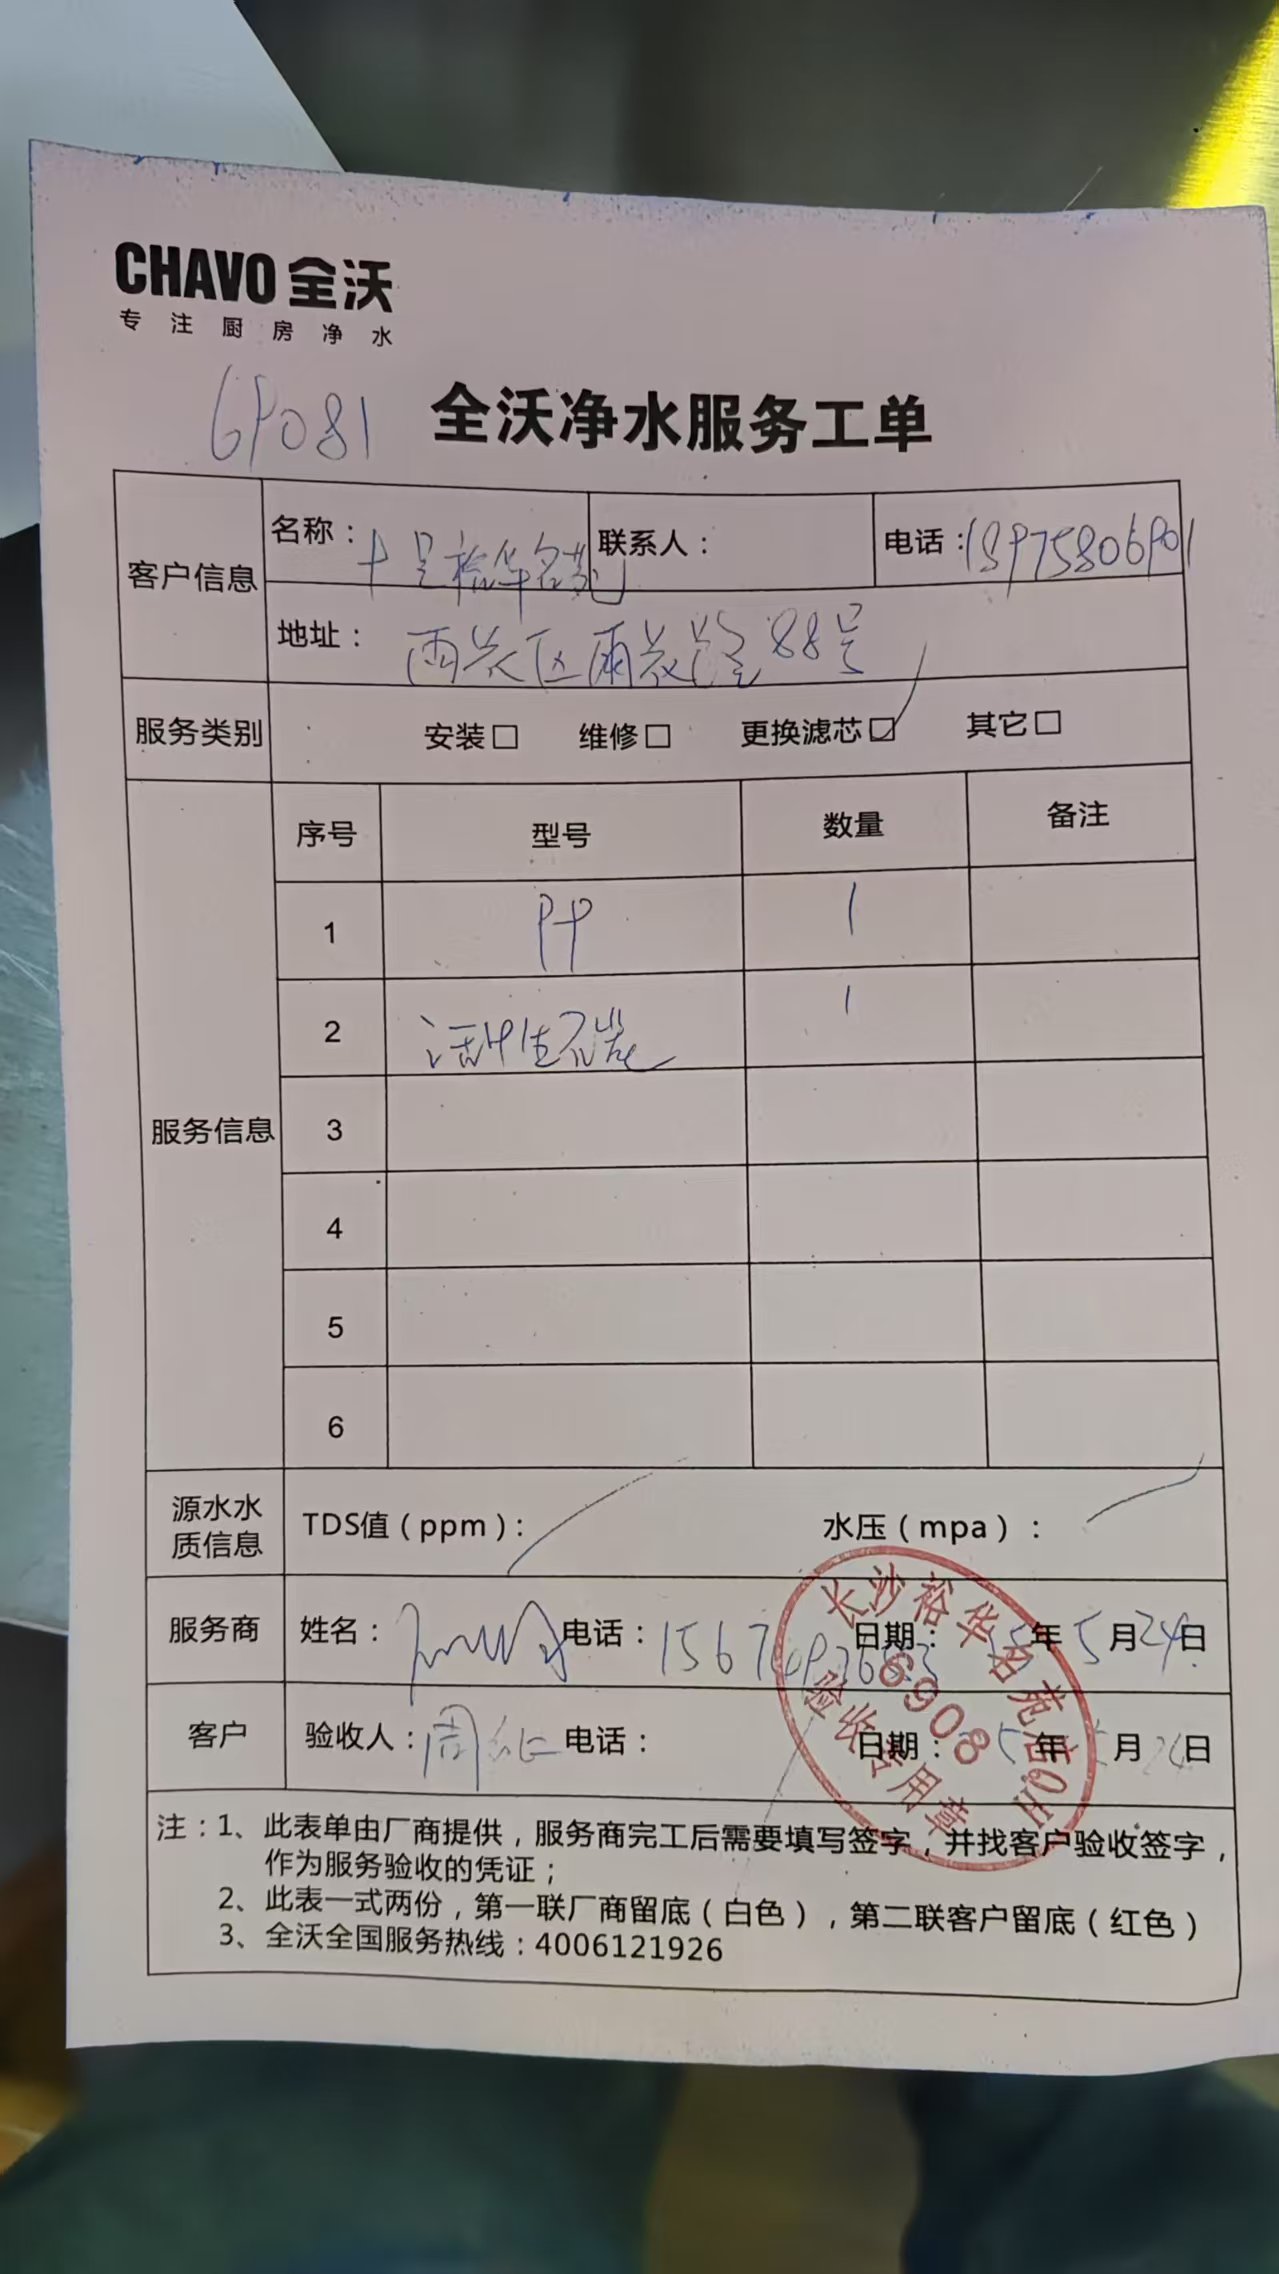 CHAVO 全沃
专注厨房净水
69081 全沃净水服务工单
客户信息 名称： 裕华名苑 联系人： 电话：18975806901
地址： 雨花区雨花 88号
服务类别 安装□ 维修□ 更换滤芯☑ 其它□
服务信息 序号 型号 数量 备注
1 PP 1
2 活性炭 1
3
4
5
6
源水水质信息 TDS值（ppm）： 水压（mpa）：
服务商 姓名： 电话： 日期： 年5月24日
客户 验收人：周 电话： 日期： 年 月24日
长沙裕华名苑店HQ
6908
验收专用章
注：1、此表单由厂商提供，服务商完工后需要填写签字，并找客户验收签字，
作为服务验收的凭证；
2、此表一式两份，第一联厂商留底（白色），第二联客户留底（红色）
3、全沃全国服务热线：4006121926